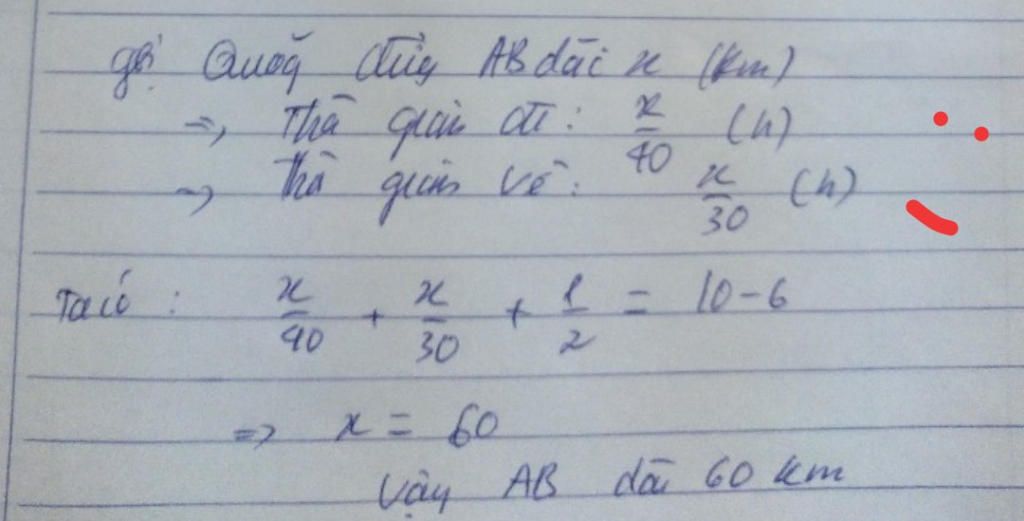 gọi Quãng đường AB dài x (km)
=> Thời gian đi: x/40 (h)
=> Thời gian về: x/30 (h)
Ta có: x/40 + x/30 + 1/2 = 10-6
=> x = 60
Vậy AB dài 60 km